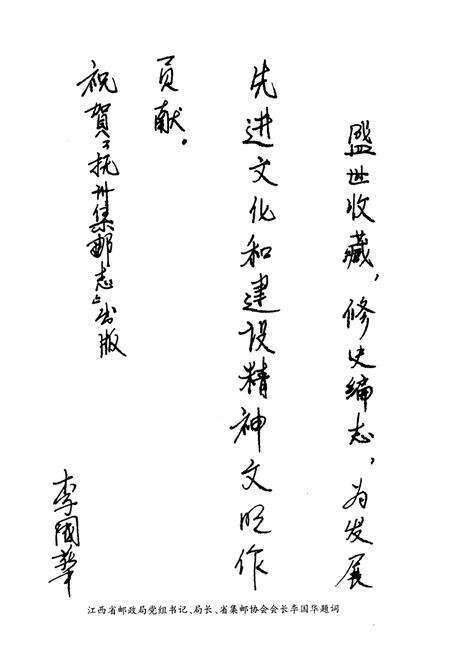 盛世收藏，修史编志，为发展
先进文化和建设精神文明作
贡献。
祝賀《抚州集邮志》出版
李國華
江西省邮政局党组书记、局长、省集邮协会会长李国华题词